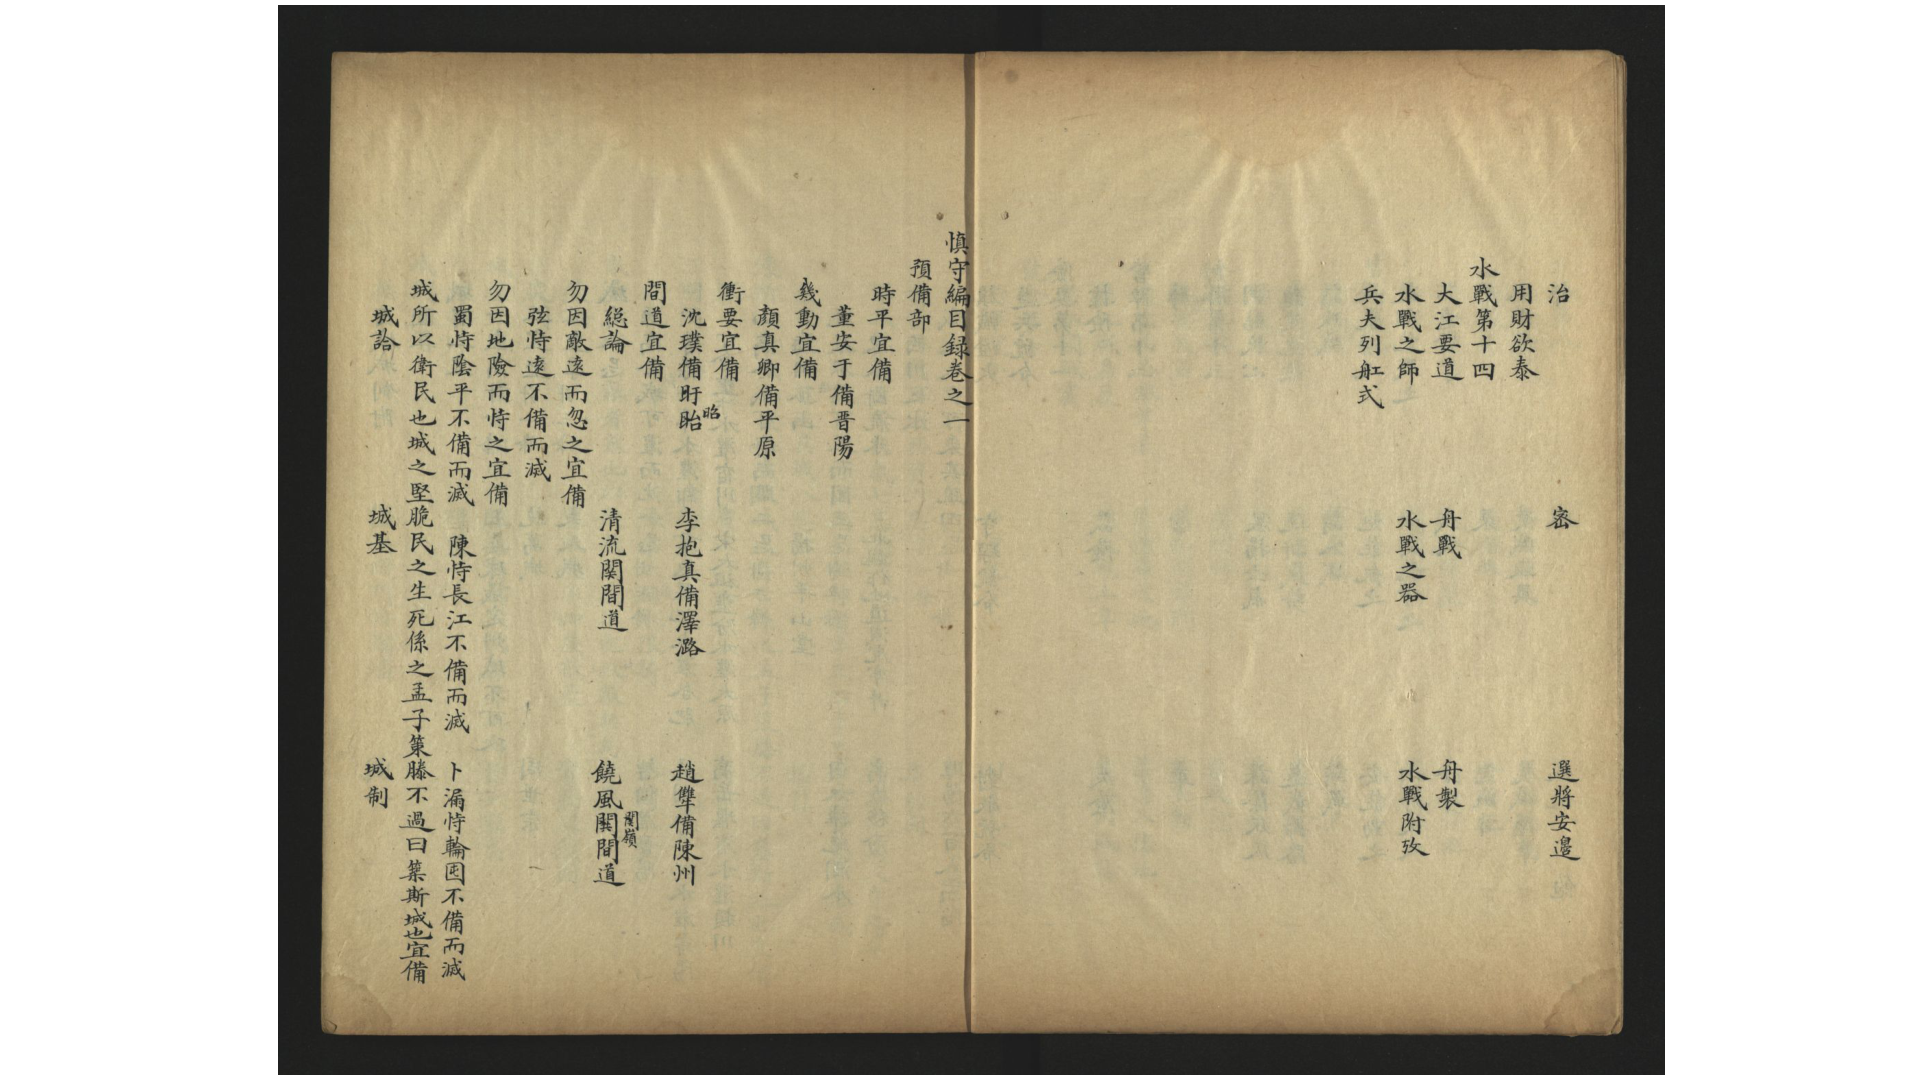 治　密　選將安邊
用財欲泰
水戰第十四
大江要道　舟戰　舟製
水戰之師　水戰之器　水戰附攷
兵夫列舡式
慎守編目録卷之一
預備部
時平宜備
董安于備晋陽
幾動宜備
顏真卿備平原
衝要宜備
沈璞備盱眙　李抱真備澤潞　趙犨備陳州
昭
間道宜備
緫論　清流関間道　饒風関間道
関嶺
勿因敵遠而忽之宜備
弦恃遠不備而滅
勿因地險而恃之宜備
蜀恃陰平不備而滅　陳恃長江不備而滅　卜漏恃輪囤不備而滅
城所以衛民也城之堅脆民之生死係之孟子策滕不過曰築斯城也宜備
城　城基　城制